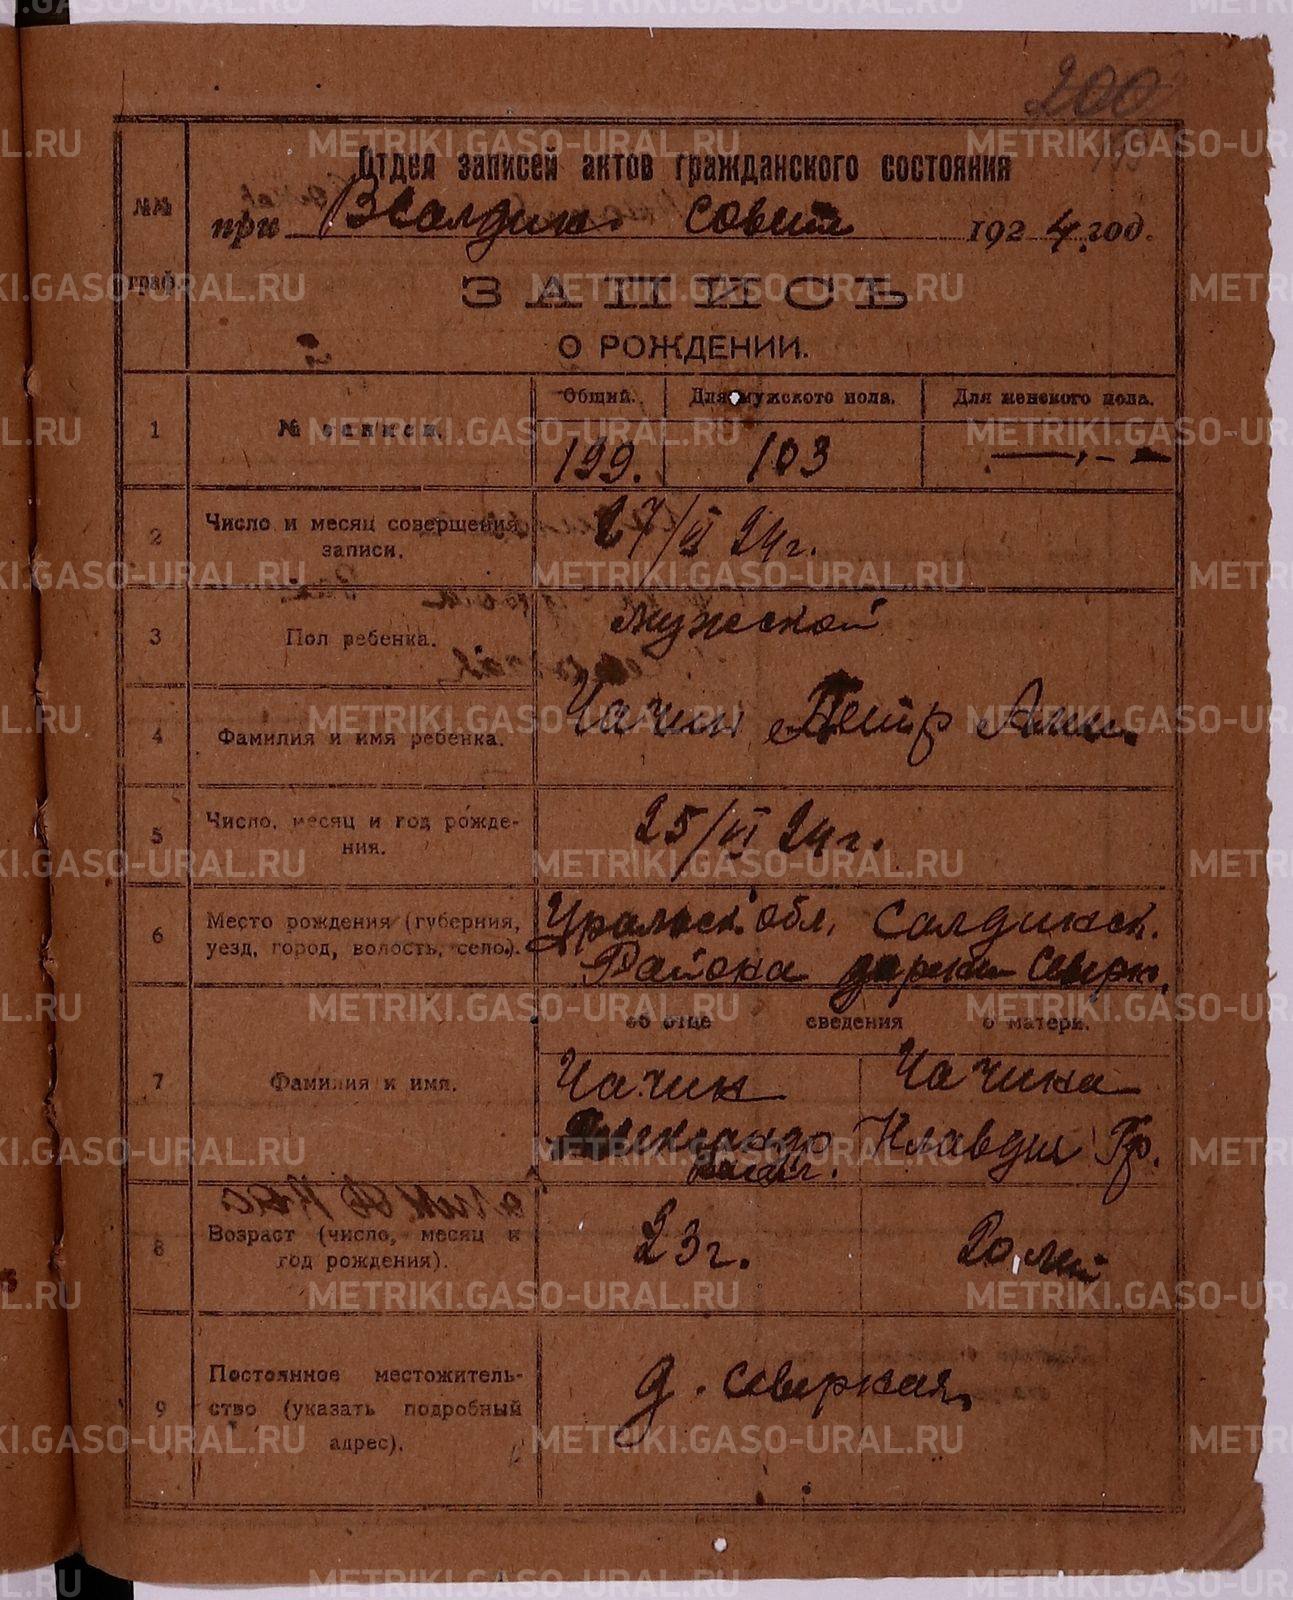 200
Отдел записей актов гражданского состояния
№№ граф.
при ВСалдин. совете 1924 год.
ЗАПИСЬ
О РОЖДЕНИИ.
Общий. Для мужского пола. Для женского пола.
1 № записи. 199. 103 —
2 Число и месяц совершения
записи. 27/VI 24 г.
3 Пол ребенка. мужской
4 Фамилия и имя ребенка. Чачин Петр
5 Число, месяц и год рожде-
ния. 25/VI 24 г.
6 Место рождения (губерния,
уезд, город, волость, село). Уральск. обл. Салдинск.
Района
об отце сведения о матери.
7 Фамилия и имя. Чачин Чачина
Александр Клавдия Гр.
8 Возраст (число, месяц и
год рождения). 23 г. 20 лет
9 Постоянное местожитель-
ство (указать подробный
адрес). д. Северная
METRIKI.GASO-URAL.RU